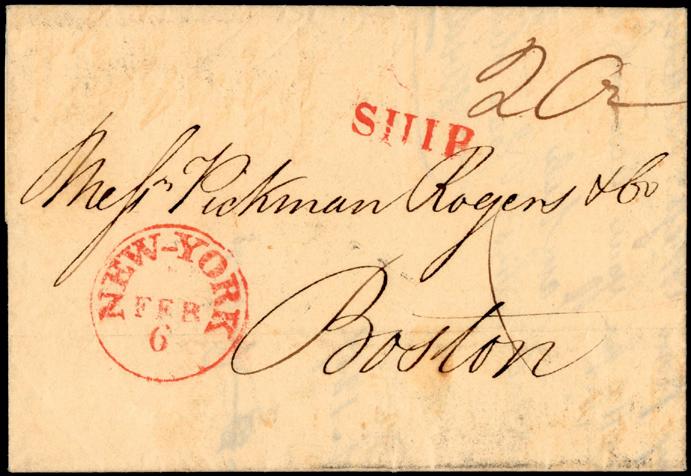 20¾
SHIP
Messrs Pickman Rogers & Co
NEW-YORK
FEB
6
Boston